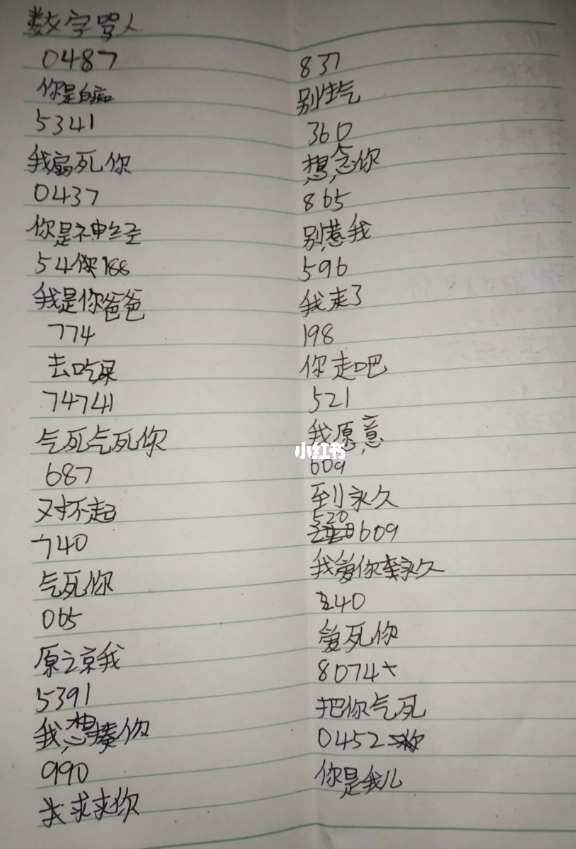 数字骂人
0487
你是白痴
5341
我扇死你
0437
你是神经
54你188
我是你爸爸
774
去吃屎
74741
气死气死你
687
对不起
740
气死你
065
原谅我
5391
我想揍你
990
求求你
837
别生气
360
想念你
865
别惹我
596
我走了
198
你走吧
521
我愿意
609
到永久
520
609
我爱你到永久
240
爱死你
8074
把你气死
0452
你是我儿
小红书